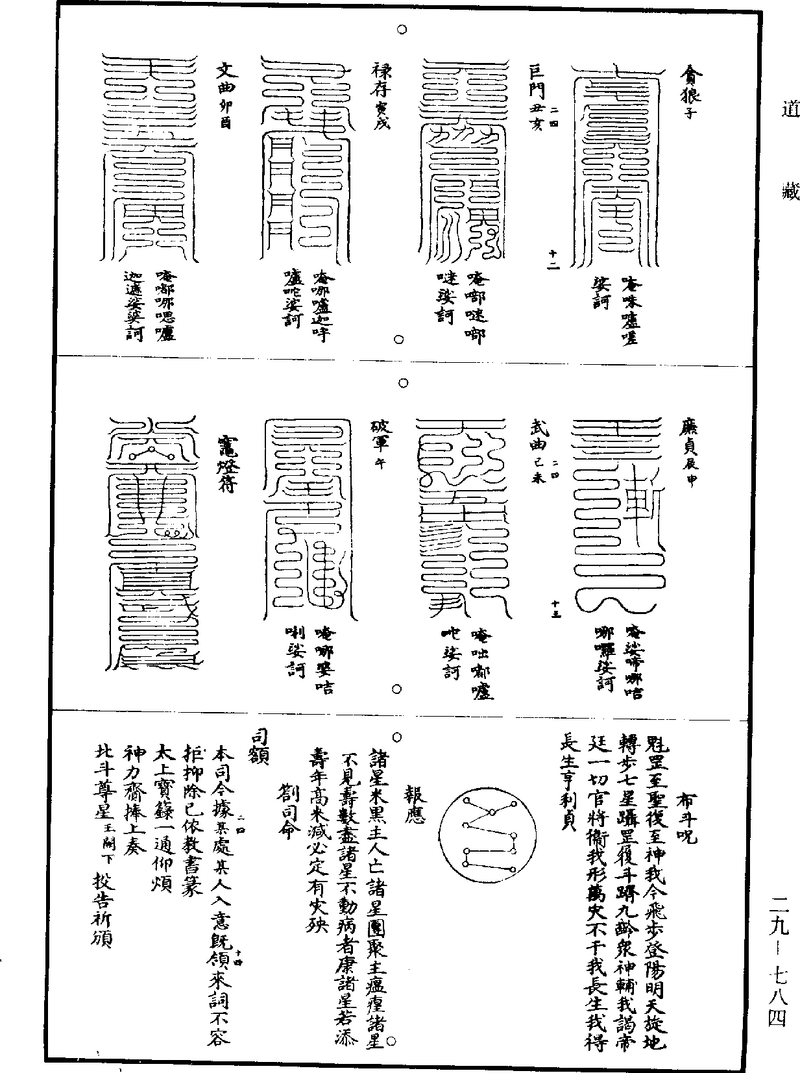 道藏
貪狼子
唵咮嚧嗟
娑訶
十二
二四
巨門丑亥
唵啷
娑訶
祿存寅戌
唵哪嚧迦吽
嚧咜娑訶
文曲卯酉
唵嘟哪嗯嚧
迦逮娑婆訶
廉貞辰申
唵娑啼哪咭
哪囉娑訶
十三
二四
武曲巳未
唵咄嘟嚧
咜娑訶
破軍午
唵哪婆咭
唎娑訶
竈燈符
布斗呪
魁罡至聖復至神我今飛步登陽明天旋地
轉步七星躡罡復斗躋九齡衆神輔我謁帝
廷一切官將衞我形萬灾不干我長生我得
長生亨利貞
報應
諸星米黑主人亡諸星團聚主瘟瘟諸星
不見壽數盡諸星不動病者康諸星若添
壽年高米減必定有灾殃
劄司命
司額
十四
二四
本司今據某處某人入意旣領來詞不容
拒抑除已依教書篆
太上寶籙一通仰煩
神力齎捧上奏
北斗尊星玉闕下投告祈頒
二九—七八四